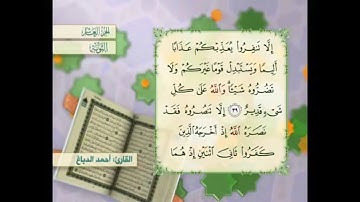 الجزء العاشر
التوبة
إِلَّا تَنفِرُوا۟ يُعَذِّبْكُمْ عَذَابًا
أَلِيمًا وَيَسْتَبْدِلْ قَوْمًا غَيْرَكُمْ وَلَا
تَضُرُّوهُ شَيْـًٔا ۗ وَٱللَّهُ عَلَىٰ كُلِّ
شَىْءٍ قَدِيرٌ ﴿٣٩﴾ إِلَّا تَنصُرُوهُ فَقَدْ
نَصَرَهُ ٱللَّهُ إِذْ أَخْرَجَهُ ٱلَّذِينَ
كَفَرُوا۟ ثَانِىَ ٱثْنَيْنِ إِذْ هُمَا
القارئ: أحمد الدباغ